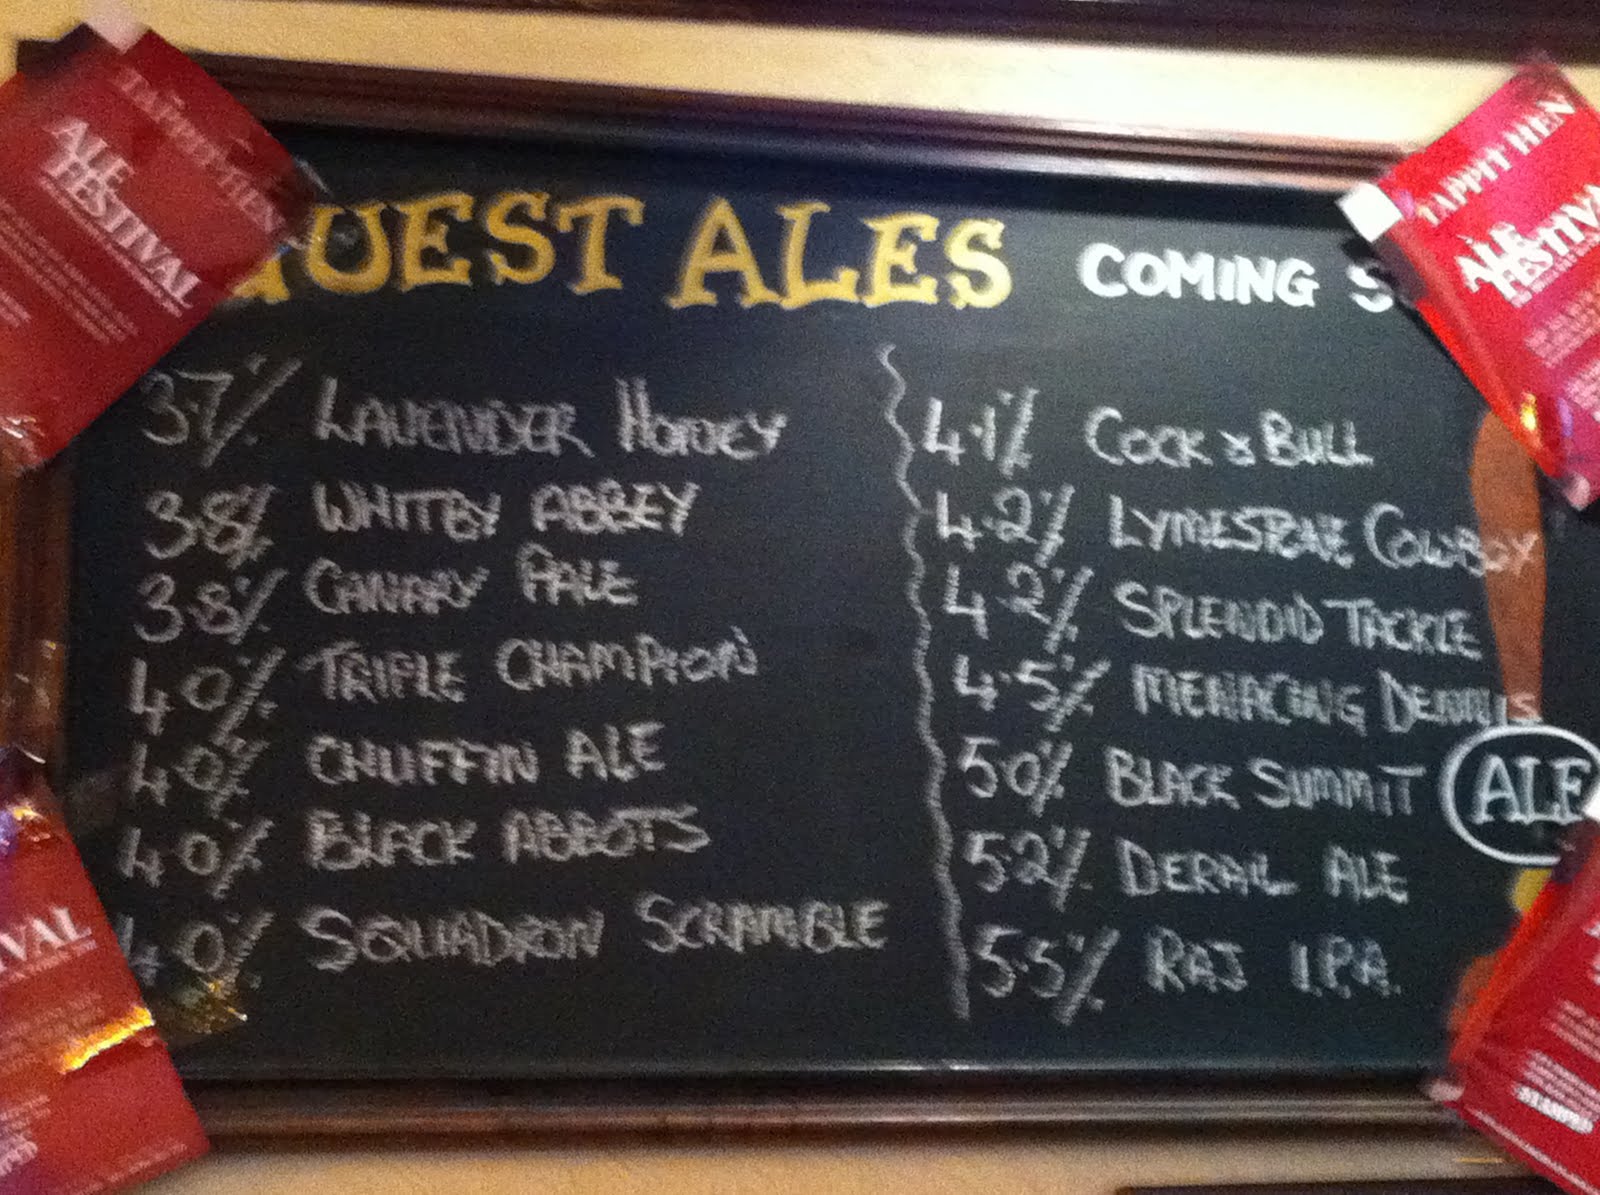 TAPPIT HEN
ALE
FESTIVAL
TAPPIT HEN
ALE
FESTIVAL
GUEST ALES
COMING S
3.7% LAVENDER HONEY
3.8% WHITBY ABBEY
3.8% CANARY PALE
4.0% TRIPLE CHAMPION
4.0% CHUFFIN ALE
4.0% BLACK ABBOTS
4.0% SQUADRON SCRAMBLE
4.1% COCK & BULL
4.2% LYMESTONE COWBOY
4.2% SPLENDID TACKLE
4.5% MENACING DENNIS
5.0% BLACK SUMMIT
5.2% DERAIL ALE
5.5% RAJ I.P.A.
ALE
VAL